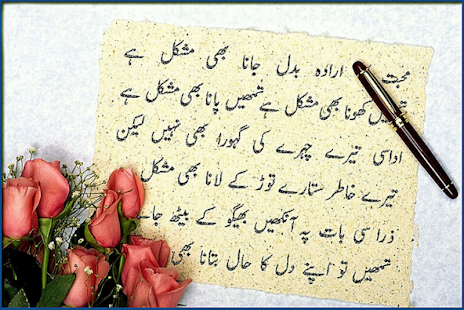 محبت ارادہ بدل جانا بھی مشکل ہے
تمہیں کھونا بھی مشکل ہے تمھیں پانا بھی مشکل ہے
اداسی تیرے چہرے کی گہورا بھی نہیں لیکن
تیرے خاطر ستارے توڑ کے لانا بھی مشکل
ذرا سی بات پہ آنکھیں بھیگو کے بیٹھ جاتے
تمھیں تو اپنے دل کا حال بتانا بھی